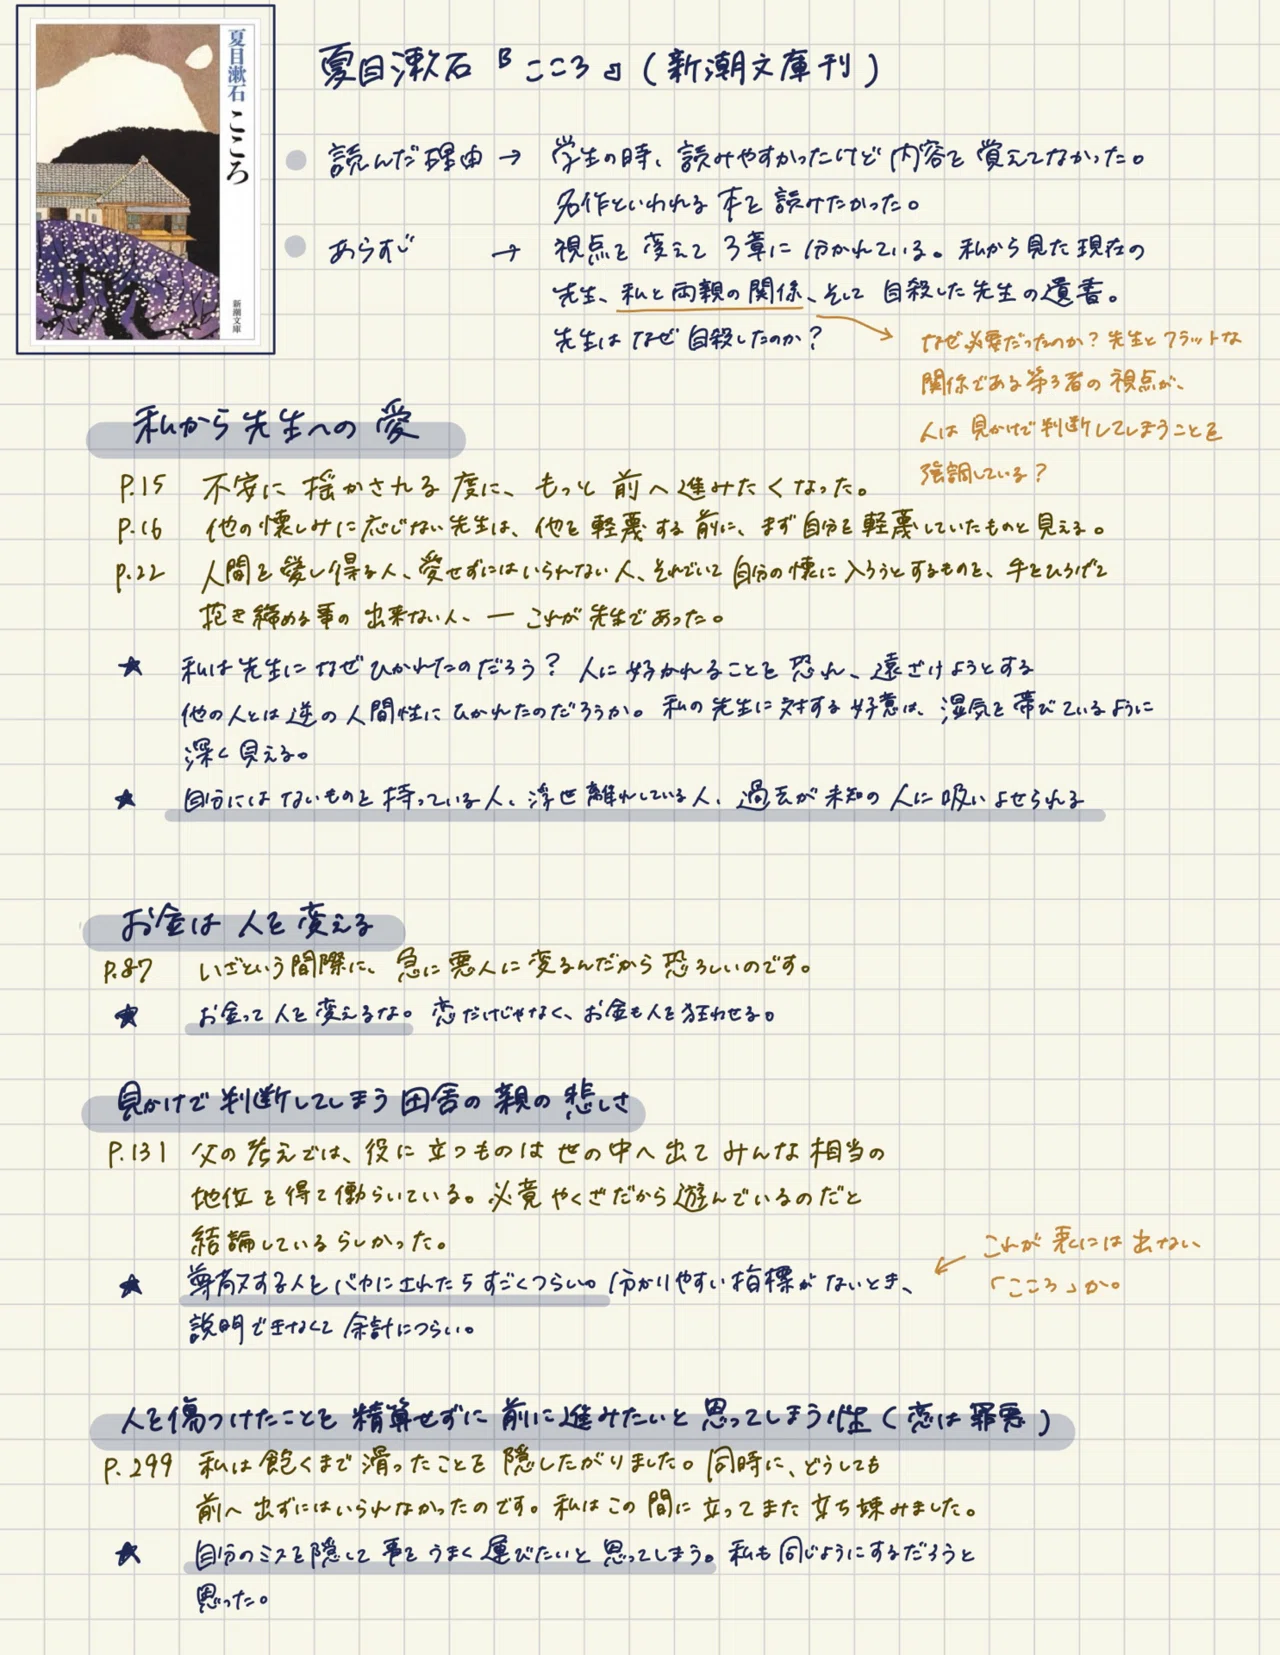 夏目漱石 こころ
新潮文庫
夏目漱石『こころ』(新潮文庫刊)
読んだ理由 → 学生の時、読みやすかったけど内容を覚えてなかった。
名作といわれる本を読みたかった。
あらすじ → 視点を変えて3章に分かれている。私から見た現在の
先生、私と両親の関係、そして自殺した先生の遺書。
先生はなぜ自殺したのか?
なぜ必要だったのか?先生とフラットな
関係である第3者の視点が、
人は見かけで判断してしまうことを
強調している?
私から先生への愛
P.15 不安に揺かされる度に、もっと前へ進みたくなった。
P.16 他の懐しみに応じない先生は、他を軽蔑する前に、まず自分を軽蔑していたものと見える。
P.22 人間を愛し得る人、愛せずにはいられない人、それでいて自分の懐に入ろうとするものを、手をひろげて
抱き締める事の出来ない人、― これが先生であった。
★ 私は先生になぜひかれたのだろう?人に好かれることを恐れ、遠ざけようとする
他の人とは逆の人間性にひかれたのだろうか。私の先生に対する好意は、湿気を帯びているように
深く見える。
★ 自分にはないものを持っている人、浮世離れしている人、過去が未知の人に吸いよせられる
お金は人を変える
P.87 いざという間際に、急に悪人に変るんだから恐ろしいのです。
★ お金って人を変えるな。恋だけじゃなく、お金も人を狂わせる。
見かけで判断してしまう田舎の親の悲しさ
P.131 父の考えでは、役に立つものは世の中へ出てみんな相当の
地位を得て働らいている。必竟やくざだから遊んでいるのだと
結論しているらしかった。
★ 尊敬する人をバカにされたらすごくつらい。分かりやすい指標がないとき、
説明できなくて余計につらい。
これが表には出ない
「こころ」か。
人を傷つけたことを精算せずに前に進みたいと思ってしまう性(恋は罪悪)
P.299 私は飽くまで滑ったことを隠したがりました。同時に、どうしても
前へ出ずにはいられなかったのです。私はこの間に立ってまた立ち竦みました。
★ 自分のミスを隠して事をうまく運びたいと思ってしまう。私も同じようにするだろうと
思った。